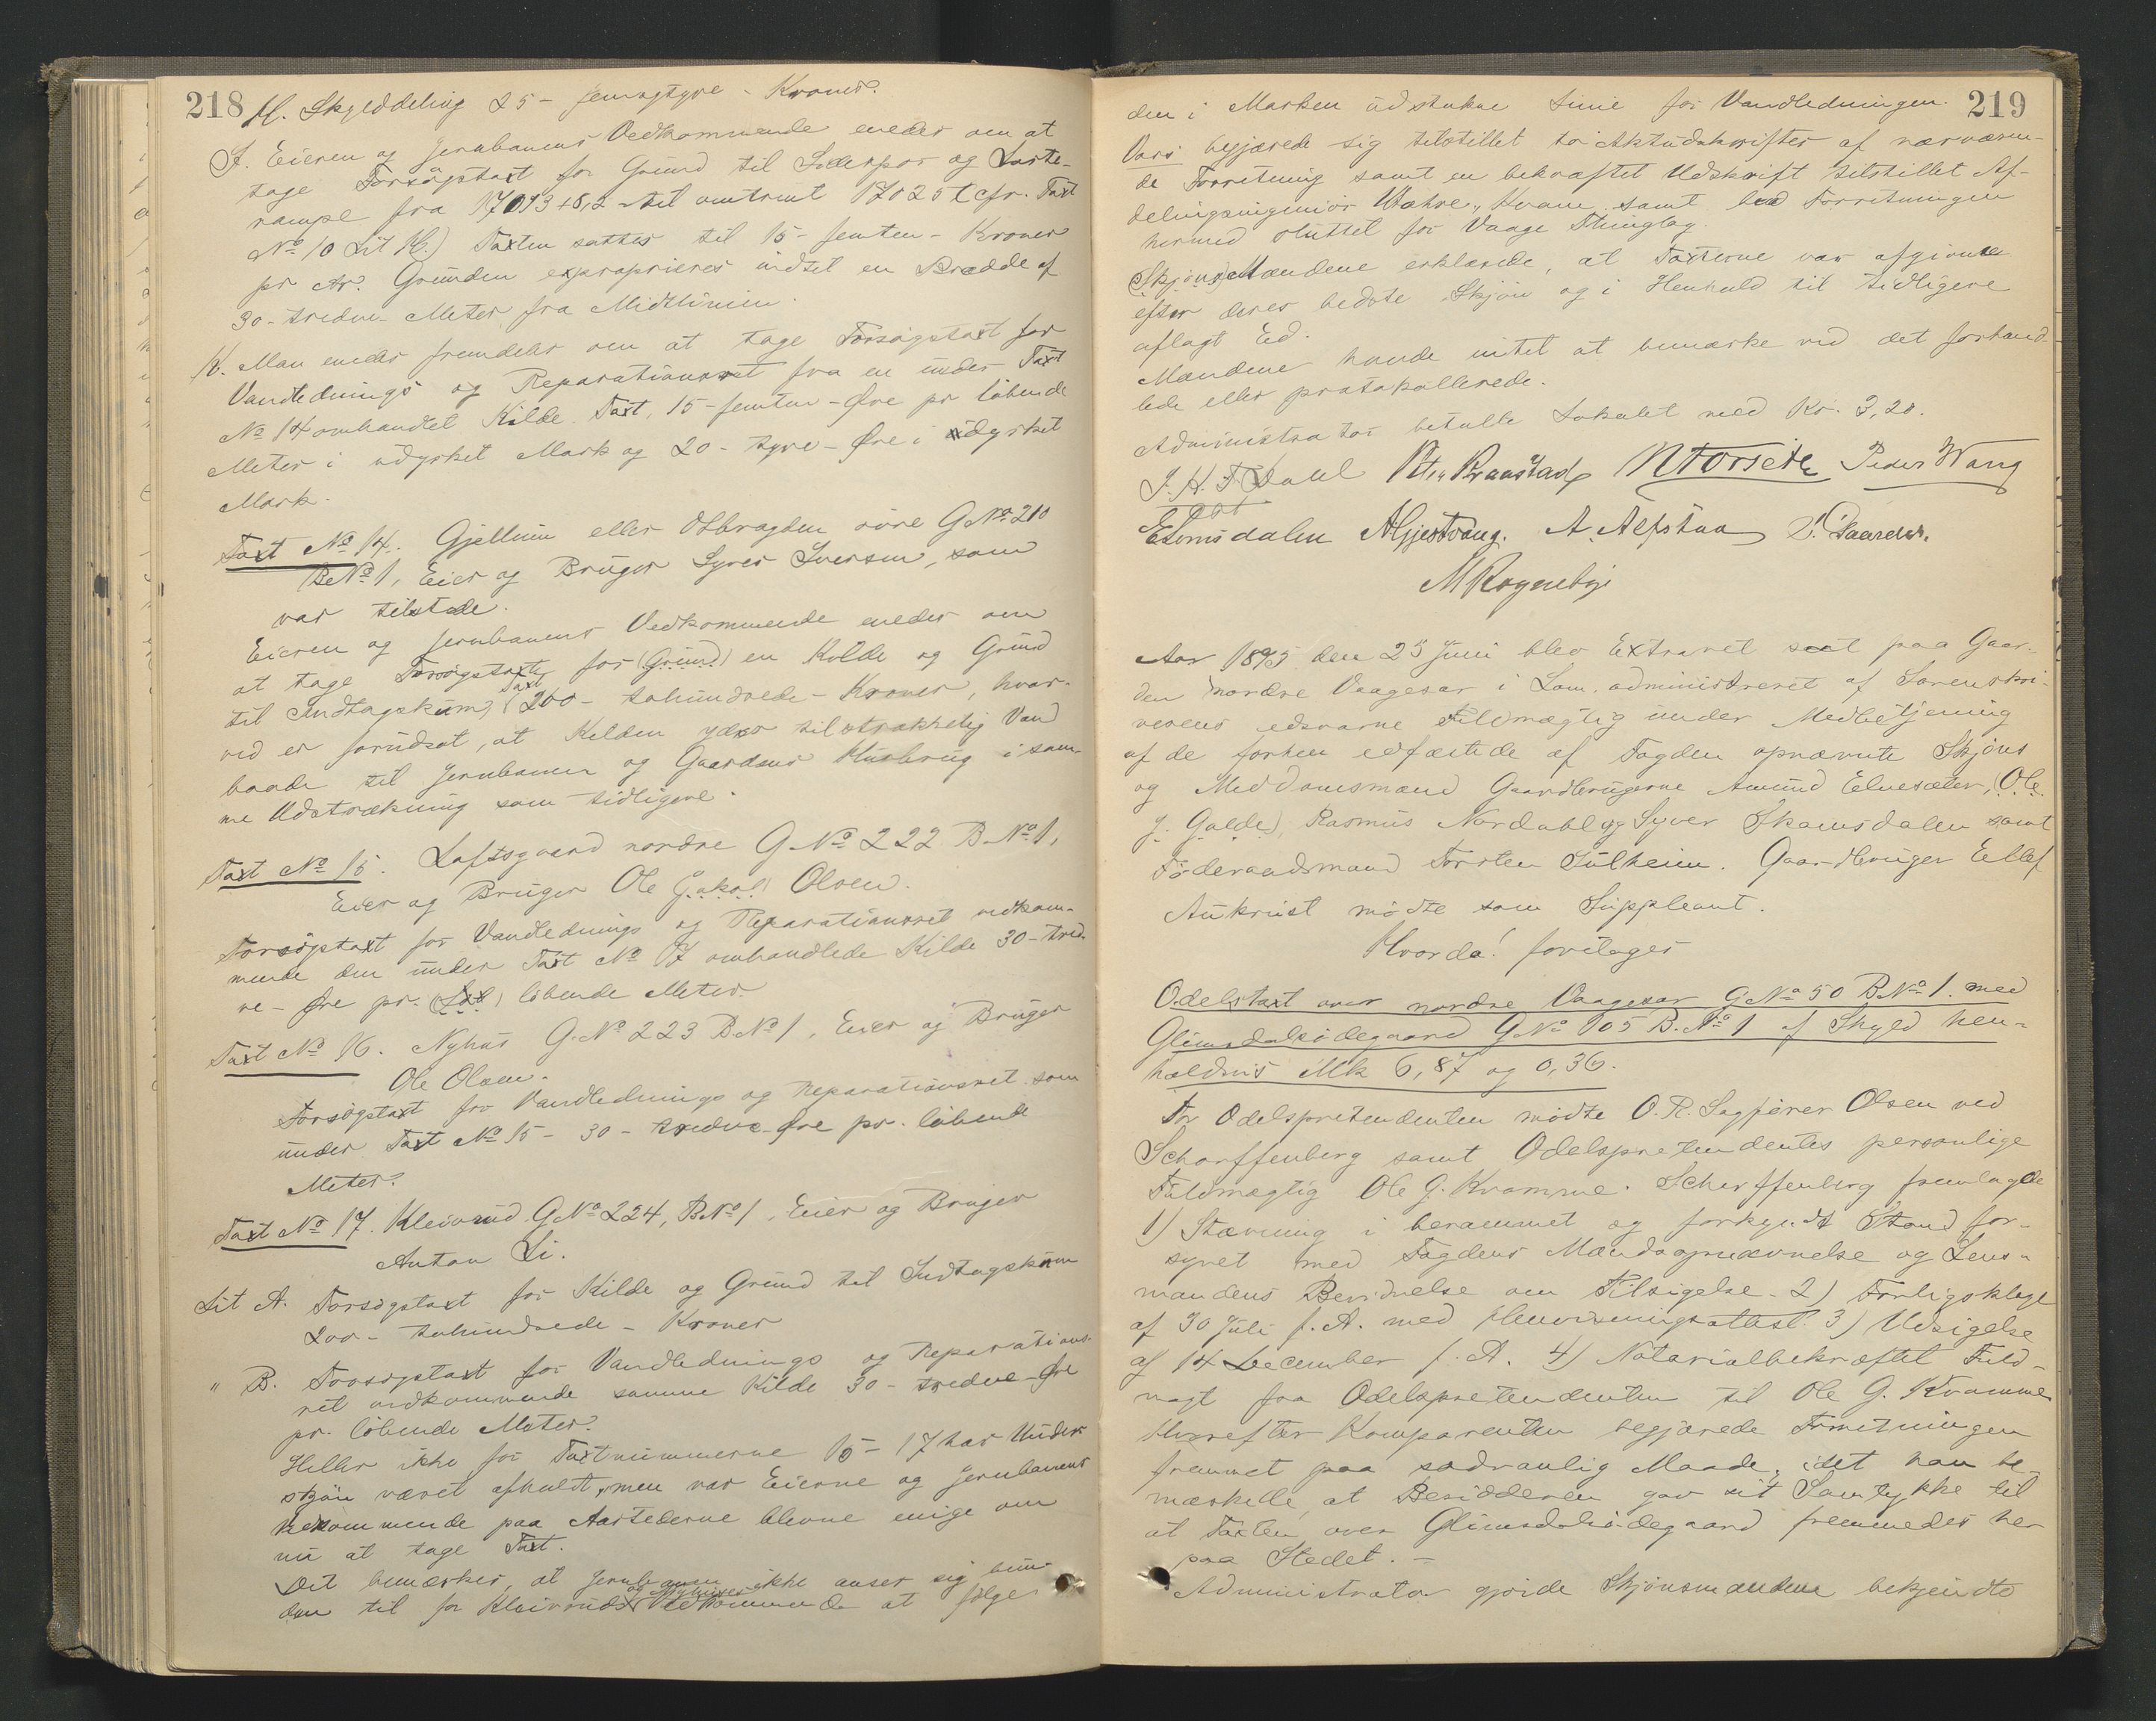 218
H. Skylddeling 25 - femogtyve - Kroner.
I. Eieren og Jernbanens Vedkommende enedes om at
tage Forsøgstaxt for Grund til Sidespor og Laste-
rampe fra 17013 + 8,2 til omtrent 17025 (cfr. Taxt
No 10 Lit H.) Taxten sattes til 15 - femten - Kroner
pr Ar. Grunden exproprieres indtil en Bredde af
30 - tredve - Meter fra Midtlinien.
K. Man enedes fremdeles om at tage Forsøgstaxt for
Vandlednings og Reparationsret fra en under Taxt
No 14 omhandlet Kilde. Taxt, 15 - femten - Øre pr løbende
Meter i udyrket Mark og 20 - tyve - Øre i dyrket
Mark.
Taxt No 14. Gjellum eller Odbragden øvre G.No 210
B.No 1, Eier og Bruger Syver Iversen, som
var tilstede.
Eieren og Jernbanens Vedkommende enedes om
at tage Forsøgstaxt for (Grund) en Kilde og Grund
til Indtagskum, Taxt 200 - tohundrede - Kroner, hvor-
ved er forudsat, at Kilden yder tilstrækkelig Vand
baade til Jernbanen og Gaardens Husbrug i sam-
me Udstrækning som tidligere.
Taxt No 15. Loftsgaard nordre G.No 222 B.No 1,
Eier og Bruger Ole (Jakob) Olsen.
Forsøgstaxt for Vandlednings og Reparationsret vedkom-
mende den under Taxt No 17 omhandlede Kilde 30 - tred-
ve - Øre pr. (Løb) løbende Meter.
Taxt No 16. Nyhus G.No 223 B.No 1, Eier og Bruger
Ole Olsen.
Forsøgstaxt for Vandlednings og Reparationsret som
under Taxt No 15 - 30 - tredve - Øre pr. løbende
Meter.
Taxt No 17. Kleivrud G.No 224, B.No 1, Eier og Bruger
Anton Li.
Lit A. Forsøgstaxt for Kilde og Grund til Indtagskum
200 - tohundrede - Kroner
" B. Forsøgstaxt for Vandlednings og Reparations-
ret vedkommende samme Kilde 30 - tredve - Øre
pr. løbende Meter.
Heller ikke for Taxtnummerne 15 - 17 har Under-
skjøn været afholdt, men var Eierne og Jernbanens
Vedkommende paa Aastederne blevne enige om
nu at tage Taxt.
Det bemærkes, at Jernbanen ikke anser sig bun-
den til for Kleivruds og Nyhuses Vedkommende at følge
219
den i Marken udstukne Linie for Vandledningen.
Vors begjærede sig tilstillet to Aktudskrifter af nærværen-
de Forretning samt en bekræftet Udskrift tilstillet Af-
delingsingeniør Wæhre, Kvam samt lod Forretningen
hermed sluttet for Vaage Thinglag.
(Skjøns) Mændene erklærede, at Taxterne var afgivne
efter deres bedste Skjøn og i Henhold til tidligere
aflagt Ed.
Mændene havde intet at bemærke ved det forhand-
lede eller protokollerede.
Administrator betalte Lokalet med Kr. 3,20.
J. H. F. Dahl Peter Kraastad N Torseth Peder Wang
E Lomsdalen A Hjestvang. A. Alfstaa
M Rognebye
Aar 1895 den 25 Juni blev Extraret sat paa Gaar-
den nordre Vaagesar i Lom, administreret af Sorenskri-
verens edsvorne Fuldmægtig under Medbetjening
af de forhen edfæstede af Fogden opnævnte Skjøns
og Meddomsmænd Gaardbrugerne Amund Elvesæter, (Ole
J. Galde) Rasmus Nordahl og Syver Skamsdalen samt
Føderaadsmand Torsten Sulheim. Gaardbruger Ellef
Aukrust mødte som Suppleant.
Hvorda! foretages
Odelstaxt over nordre Vaagesar G.No 50 B.No 1. med
Glimsdalsødegaard G.No 105 B.No 1 af Skyld hen-
holdsvis Mk 6,87 og 0,36.
For Odelspretendenten mødte O.R. Sagfører Olsen ved
Scharffenberg samt Odelspretendentes personlige
Fuldmægtig Ole G. Kramme. Scharffenberg fremlagde
1) Stævning i berammet og forkyndt Stand for-
synet med Fogdens Mændsopnævnelse og Lens-
mandens Bevidnelse om Tilsigelse. 2) Forligsklage
af 30 Juli f. A. med Henvisningsattest. 3) Udsigelse
af 14 December f. A. 4) Notarialbekræftet Fuld-
magt fra Odelspretendenten til Ole G. Kramme
Hvorefter Komparenten begjærede Forretningen
fremmet paa sædvanlig Maade, idet han be-
mærkede, at Besidderen gav sit Samtykke til
at Taxten over Glimsdalsødegaard fremmedes her
paa Stedet. -
Administrator gjorde Skjønsmændene bekjendte